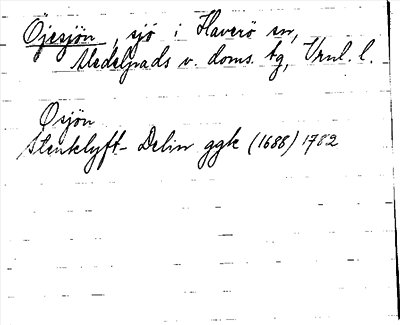 Öjesjön, sjö i Haverö sn,
Medelpads v. doms. tg, Vnl. l.
Osjön
Stenklyft - Delin ggk (1688) 1782